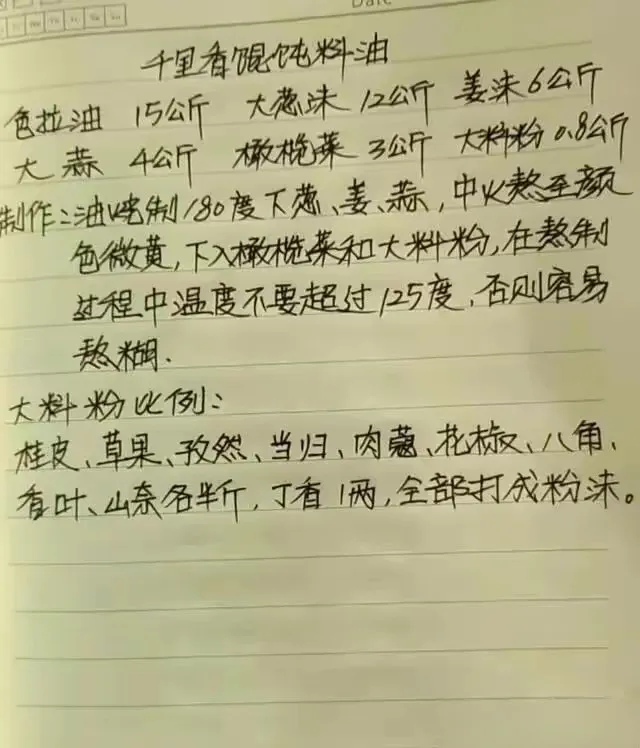 Date
千里香馄饨料油
色拉油 15公斤 大葱沫 12公斤 姜沫6公斤
大蒜 4公斤 橄榄菜 3公斤 大料粉 0.8公斤
制作:油烧制180度下葱、姜、蒜,中火熬至颜
色微黄,下入橄榄菜和大料粉,在熬制
过程中温度不要超过125度,否则容易
熬糊.
大料粉比例:
桂皮、草果、孜然、当归、肉蔻、花椒、八角、
香叶、山奈各半斤,丁香1两,全部打成粉沫。